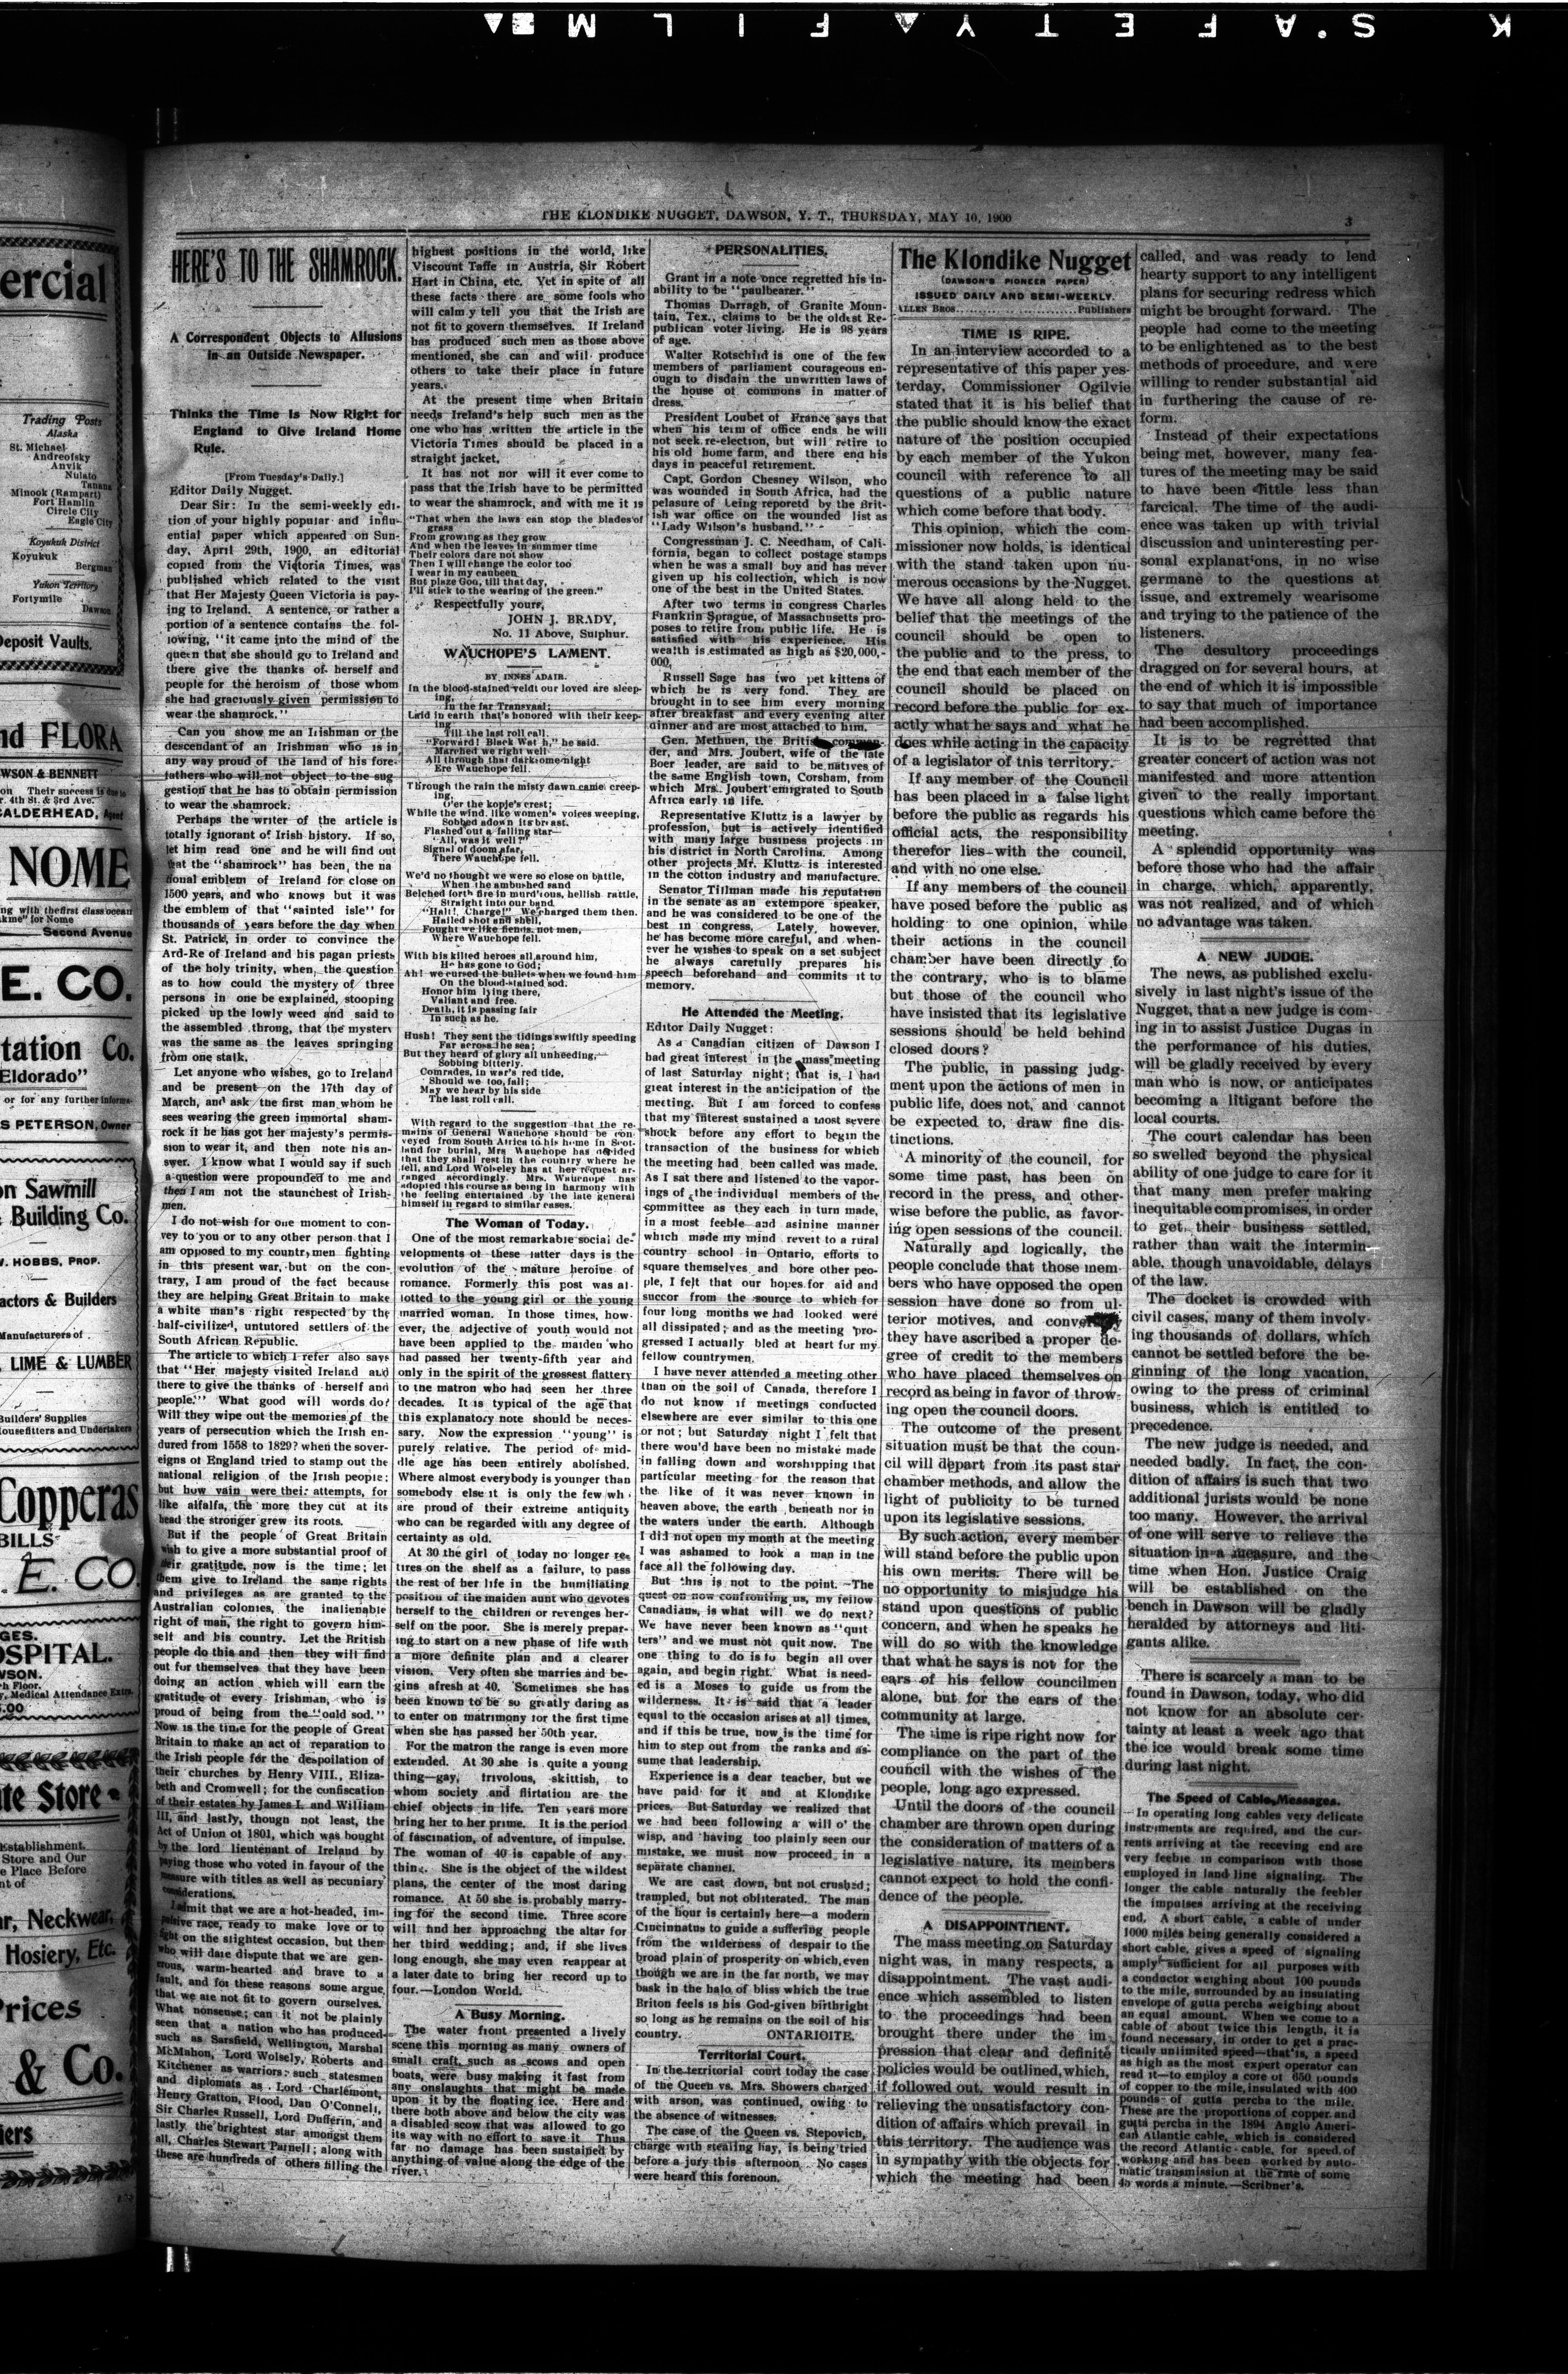 K S'AFETY FILM
ercial
Trading Posts
Alaska
St. Michael
Andreofsky
Anvik
Nulato
Tanana
Minook (Rampart)
Fort Hamlin
Circle City
Eagle City
Koyukuk District
Koyukuk
Bergman
Yukon Territory
Fortymile
Dawson
Deposit Vaults.
nd FLORA
WSON & BENNETT
4th St. & 3rd Ave.
CALDERHEAD, Agent
NOME
Second Avenue
E. CO.
tation Co.
Eldorado"
or for any further informa-
S PETERSON, Owner
on Sawmill
Building Co.
HOBBS, PROP.
actors & Builders
Manufacturers of
LIME & LUMBER
Builders' Supplies
Housefitters and Undertakers
Copperas
BILLS
E. CO.
GES.
OSPITAL.
WSON.
Floor.
Medical Attendance Extra.
5.00
te Store
Establishment.
Store and Our
e Place Before
nt of
ar, Neckwear,
Hosiery, Etc.
Prices
& Co.
iers
THE KLONDIKE NUGGET, DAWSON, Y. T., THURSDAY, MAY 10, 1900
3
HERE'S TO THE SHAMROCK.
A Correspondent Objects to Allusions
in an Outside Newspaper.
Thinks the Time Is Now Right for
England to Give Ireland Home
Rule.
[From Tuesday's Daily.]
Editor Daily Nugget.
Dear Sir: In the semi-weekly edi-
tion of your highly popular and influ-
ential paper which appeared on Sun-
day, April 29th, 1900, an editorial
copied from the Victoria Times, was
published which related to the visit
that Her Majesty Queen Victoria is pay-
ing to Ireland. A sentence, or rather a
portion of a sentence contains the fol-
lowing, "it came into the mind of the
queen that she should go to Ireland and
there give the thanks of herself and
people for the heroism of those whom
she had graciously given permission to
wear the shamrock."
Can you show me an Irishman or the
descendant of an Irishman who is in
any way proud of the land of his fore-
fathers who will not object to the sug
gestion that he has to obtain permission
to wear the shamrock.
Perhaps the writer of the article is
totally ignorant of Irish history. If so,
let him read one and he will find out
that the "shamrock" has been, the na
tional emblem of Ireland for close on
1500 years, and who knows but it was
the emblem of that "sainted isle" for
thousands of years before the day when
St. Patrick, in order to convince the
Ard-Re of Ireland and his pagan priests
of the holy trinity, when, the question
as to how could the mystery of three
persons in one be explained, stooping
picked up the lowly weed and said to
the assembled throng, that the mystery
was the same as the leaves springing
from one stalk.
Let anyone who wishes, go to Ireland
and be present on the 17th day of
March, and ask the first man whom he
sees wearing the green immortal sham-
rock if he has got her majesty's permis-
sion to wear it, and then note his an-
swer. I know what I would say if such
a question were propounded to me and
then I am not the staunchest of Irish-
men.
I do not wish for one moment to con-
vey to you or to any other person that I
am opposed to my countrymen fighting
in this present war, but on the con-
trary, I am proud of the fact because
they are helping Great Britain to make
a white man's right respected by the
half-civilized, untutored settlers of the
South African Republic.
The article to which I refer also says
that "Her majesty visited Ireland and
there to give the thanks of herself and
people." What good will words do?
Will they wipe out the memories of the
years of persecution which the Irish en-
dured from 1558 to 1829? when the sover-
eigns of England tried to stamp out the
national religion of the Irish people;
but how vain were their attempts, for
like alfalfa, the more they cut at its
head the stronger grew its roots.
But if the people of Great Britain
wish to give a more substantial proof of
their gratitude, now is the time; let
them give to Ireland the same rights
and privileges as are granted to the
Australian colonies, the inalienable
right of man, the right to govern him-
self and his country. Let the British
people do this and then they will find
out for themselves that they have been
doing an action which will earn the
gratitude of every Irishman, who is
proud of being from the "ould sod."
Now is the time for the people of Great
Britain to make an act of reparation to
the Irish people for the despoilation of
their churches by Henry VIII., Eliza-
beth and Cromwell; for the confiscation
of their estates by James I. and William
III, and lastly, though not least, the
Act of Union of 1801, which was bought
by the lord lieutenant of Ireland by
paying those who voted in favour of the
measure with titles as well as pecuniary
considerations.
I admit that we are a hot-headed, im-
pulsive race, ready to make love or to
fight on the slightest occasion, but then
who will dare dispute that we are gen-
erous, warm-hearted and brave to a
fault, and for these reasons some argue
that we are not fit to govern ourselves.
What nonsense; can it not be plainly
seen that a nation who has produced
such as Sarsfield, Wellington, Marshal
McMahon, Lord Wolsely, Roberts and
Kitchener as warriors; such statesmen
and diplomats as Lord Charlemont,
Henry Gratton, Flood, Dan O'Connell,
Sir Charles Russell, Lord Dufferin, and
lastly, the brightest star amongst them
all, Charles Stewart Parnell; along with
these are hundreds of others filling the
highest positions in the world, like
Viscount Taffe in Austria, Sir Robert
Hart in China, etc. Yet in spite of all
these facts there are some fools who
will calmy tell you that the Irish are
not fit to govern themselves. If Ireland
has produced such men as those above
mentioned, she can and will produce
others to take their place in future
years.
At the present time when Britain
needs Ireland's help such men as the
one who has written the article in the
Victoria Times should be placed in a
straight jacket.
It has not nor will it ever come to
pass that the Irish have to be permitted
to wear the shamrock, and with me it is
"That when the laws can stop the blades of
grass
From growing as they grow
And when the leaves in summer time
Their colors dare not show
Then I will change the color too
I wear in my caubeen
But plaze God, till that day,
I'll stick to the wearing of the green."
Respectfully yours,
JOHN J. BRADY,
No. 11 Above, Sulphur.
WAUCHOPE'S LAMENT.
BY INNES ADAIR.
In the blood-stained veldt our loved are sleep-
ing,
In the far Transvaal;
Laid in earth that's honored with their keep-
ing
Till the last roll call.
"Forward! Black Watch," he said.
Marched we right well
All through that darksome night
Ere Wauchope fell.
Through the rain the misty dawn came creep-
ing,
O'er the kopje's crest;
While the wind, like women's voices weeping,
Sobbed adown its breast.
Flashed out a falling star—
"All, was it well?"
Signal of doom afar,
There Wauchope fell.
We'd no thought we were so close on battle,
When the ambushed sand
Belched forth fire in murd'rous, hellish rattle,
Straight into our band.
"Halt!, Charge!" We charged them then.
Hailed shot and shell,
Fought we like fiends, not men,
Where Wauchope fell.
With his killed heroes all around him,
He has gone to God;
Ah! we cursed the bullets when we found him
On the blood-stained sod.
Honor him lying there,
Valiant and free.
Death, it is passing fair
In such as he.
Hush! They sent the tidings swiftly speeding
Far across the sea;
But they heard of glory all unheeding,
Sobbing bitterly.
Comrades, in war's red tide,
Should we too, fall;
May we hear by his side
The last roll call.
With regard to the suggestion that the re-
mains of General Wauchope should be con
veyed from South Africa to his home in Scot-
land for burial, Mrs Wauchope has decided
that they shall rest in the country where he
fell, and Lord Wolseley has at her request ar-
ranged accordingly. Mrs. Wauchope has
adopted this course as being in harmony with
the feeling entertained by the late general
himself in regard to similar cases.
The Woman of Today.
One of the most remarkable social de-
velopments of these latter days is the
evolution of the mature heroine of
romance. Formerly this post was al-
lotted to the young girl or the young
married woman. In those times, how-
ever, the adjective of youth would not
have been applied to the maiden who
had passed her twenty-fifth year and
only in the spirit of the grossest flattery
to the matron who had seen her three
decades. It is typical of the age that
this explanatory note should be neces-
sary. Now the expression "young" is
purely relative. The period of mid-
dle age has been entirely abolished.
Where almost everybody is younger than
somebody else it is only the few wh
are proud of their extreme antiquity
who can be regarded with any degree of
certainty as old.
At 30 the girl of today no longer re-
tires on the shelf as a failure, to pass
the rest of her life in the humiliating
position of the maiden aunt who devotes
herself to the children or revenges her-
self on the poor. She is merely prepar-
ing to start on a new phase of life with
a more definite plan and a clearer
vision. Very often she marries and be-
gins afresh at 40. Sometimes she has
been known to be so greatly daring as
to enter on matrimony for the first time
when she has passed her 50th year.
For the matron the range is even more
extended. At 30 she is quite a young
thing—gay, frivolous, skittish, to
whom society and flirtation are the
chief objects in life. Ten years more
bring her to her prime. It is the period
of fascination, of adventure, of impulse.
The woman of 40 is capable of any-
thing. She is the object of the wildest
plans, the center of the most daring
romance. At 50 she is probably marry-
ing for the second time. Three score
will find her approachng the altar for
her third wedding; and, if she lives
long enough, she may even reappear at
a later date to bring her record up to
four.—London World.
A Busy Morning.
The water front presented a lively
scene this morning as many owners of
small craft, such as scows and open
boats, were busy making it fast from
any onslaughts that might be made
upon it by the floating ice. Here and
there both above and below the city was
a disabled scow that was allowed to go
its way with no effort to save it. Thus
far no damage has been sustained by
anything of value along the edge of the
river.
PERSONALITIES.
Grant in a note once regretted his in-
ability to be "paulbearer."
Thomas Darragh, of Granite Moun-
tain, Tex., claims to be the oldest Re-
publican voter living. He is 98 years
of age.
Walter Rotschild is one of the few
members of parliament courageous en-
ough to disdain the unwritten laws of
the house of commons in matter of
dress.
President Loubet of France says that
when his term of office ends he will
not seek re-election, but will retire to
his old home farm, and there end his
days in peaceful retirement.
Capt. Gordon Chesney Wilson, who
was wounded in South Africa, had the
pelasure of being reporetd by the Brit-
ish war office on the wounded list as
"Lady Wilson's husband."
Congressman J. C. Needham, of Cali-
fornia, began to collect postage stamps
when he was a small boy and has never
given up his collection, which is now
one of the best in the United States.
After two terms in congress Charles
Franklin Sprague, of Massachusetts pro-
poses to retire from public life. He is
satisfied with his experience. His
wealth is estimated as high as $20,000,-
000.
Russell Sage has two pet kittens of
which he is very fond. They are
brought in to see him every morning
after breakfast and every evening after
dinner and are most attached to him.
Gen. Methuen, the British comman-
der, and Mrs. Joubert, wife of the late
Boer leader, are said to be natives of
the same English town, Corsham, from
which Mrs. Joubert emigrated to South
Africa early in life.
Representative Kluttz is a lawyer by
profession, but is actively identified
with many large business projects in
his district in North Carolina. Among
other projects Mr. Kluttz is interested
in the cotton industry and manufacture.
Senator Tillman made his reputation
in the senate as an extempore speaker,
and he was considered to be one of the
best in congress. Lately, however,
he has become more careful, and when-
ever he wishes to speak on a set subject
he always carefully prepares his
speech beforehand and commits it to
memory.
He Attended the Meeting.
Editor Daily Nugget:
As a Canadian citizen of Dawson I
had great interest in the mass meeting
of last Saturday night; that is, I had
great interest in the anticipation of the
meeting. But I am forced to confess
that my interest sustained a most severe
shock before any effort to begin the
transaction of the business for which
the meeting had been called was made.
As I sat there and listened to the vapor-
ings of the individual members of the
committee as they each in turn made,
in a most feeble and asinine manner
which made my mind revert to a rural
country school in Ontario, efforts to
square themselves and bore other peo-
ple, I felt that our hopes for aid and
succor from the source to which for
four long months we had looked were
all dissipated; and as the meeting pro-
gressed I actually bled at heart for my
fellow countrymen.
I have never attended a meeting other
than on the soil of Canada, therefore I
do not know if meetings conducted
elsewhere are ever similar to this one
or not; but Saturday night I felt that
there wou'd have been no mistake made
in falling down and worshipping that
particular meeting for the reason that
the like of it was never known in
heaven above, the earth beneath nor in
the waters under the earth. Although
I did not open my month at the meeting
I was ashamed to look a man in the
face all the following day.
But this is not to the point. The
quest on now confronting us, my fellow
Canadians, is what will we do next?
We have never been known as "quit
ters" and we must not quit now. The
one thing to do is to begin all over
again, and begin right. What is need-
ed is a Moses to guide us from the
wilderness. It is said that a leader
equal to the occasion arises at all times,
and if this be true, now is the time for
him to step out from the ranks and as-
sume that leadership.
Experience is a dear teacher, but we
have paid for it and at Klondike
prices. But Saturday we realized that
we had been following a will o' the
wisp, and having too plainly seen our
mistake, we must now proceed in a
separate channel.
We are cast down, but not crushed;
trampled, but not obliterated. The man
of the hour is certainly here—a modern
Cincinnatus to guide a suffering people
from the wilderness of despair to the
broad plain of prosperity on which, even
though we are in the far north, we may
bask in the halo of bliss which the true
Briton feels is his God-given birthright
so long as he remains on the soil of his
country. ONTARIOITE.
Territorial Court.
In the territorial court today the case
of the Queen vs. Mrs. Showers charged
with arson, was continued, owing to
the absence of witnesses.
The case of the Queen vs. Stepovich,
charge with stealing hay, is being tried
before a jury this afternoon. No cases
were heard this forenoon.
The Klondike Nugget
(DAWSON'S PIONEER PAPER)
ISSUED DAILY AND SEMI-WEEKLY.
ALLEN BROS. Publishers
TIME IS RIPE.
In an interview accorded to a
representative of this paper yes-
terday, Commissioner Ogilvie
stated that it is his belief that
the public should know the exact
nature of the position occupied
by each member of the Yukon
council with reference to all
questions of a public nature
which come before that body.
This opinion, which the com-
missioner now holds, is identical
with the stand taken upon nu-
merous occasions by the Nugget.
We have all along held to the
belief that the meetings of the
council should be open to
the public and to the press, to
the end that each member of the
council should be placed on
record before the public for ex-
actly what he says and what he
does while acting in the capacity
of a legislator of this territory.
If any member of the Council
has been placed in a false light
before the public as regards his
official acts, the responsibility
therefor lies with the council,
and with no one else.
If any members of the council
have posed before the public as
holding to one opinion, while
their actions in the council
chamber have been directly to
the contrary, who is to blame
but those of the council who
have insisted that its legislative
sessions should be held behind
closed doors?
The public, in passing judg-
ment upon the actions of men in
public life, does not, and cannot
be expected to, draw fine dis-
tinctions.
A minority of the council, for
some time past, has been on
record in the press, and other-
wise before the public, as favor-
ing open sessions of the council.
Naturally and logically, the
people conclude that those mem-
bers who have opposed the open
session have done so from ul-
terior motives, and conversely
they have ascribed a proper de-
gree of credit to the members
who have placed themselves on
record as being in favor of throw-
ing open the council doors.
The outcome of the present
situation must be that the coun-
cil will depart from its past star
chamber methods, and allow the
light of publicity to be turned
upon its legislative sessions.
By such action, every member
will stand before the public upon
his own merits. There will be
no opportunity to misjudge his
stand upon questions of public
concern, and when he speaks he
will do so with the knowledge
that what he says is not for the
ears of his fellow councilmen
alone, but for the ears of the
community at large.
The time is ripe right now for
compliance on the part of the
council with the wishes of the
people, long ago expressed.
Until the doors of the council
chamber are thrown open during
the consideration of matters of a
legislative nature, its members
cannot expect to hold the confi-
dence of the people.
A DISAPPOINTMENT.
The mass meeting on Saturday
night was, in many respects, a
disappointment. The vast audi-
ence which assembled to listen
to the proceedings had been
brought there under the im-
pression that clear and definite
policies would be outlined, which,
if followed out, would result in
relieving the unsatisfactory con-
dition of affairs which prevail in
this territory. The audience was
in sympathy with the objects for
which the meeting had been
called, and was ready to lend
hearty support to any intelligent
plans for securing redress which
might be brought forward. The
people had come to the meeting
to be enlightened as to the best
methods of procedure, and were
willing to render substantial aid
in furthering the cause of re-
form.
Instead of their expectations
being met, however, many fea-
tures of the meeting may be said
to have been little less than
farcical. The time of the audi-
ence was taken up with trivial
discussion and uninteresting per-
sonal explanations, in no wise
germane to the questions at
issue, and extremely wearisome
and trying to the patience of the
listeners.
The desultory proceedings
dragged on for several hours, at
the end of which it is impossible
to say that much of importance
had been accomplished.
It is to be regretted that
greater concert of action was not
manifested and more attention
given to the really important
questions which came before the
meeting.
A splendid opportunity was
before those who had the affair
in charge, which, apparently,
was not realized, and of which
no advantage was taken.
A NEW JUDGE.
The news, as published exclu-
sively in last night's issue of the
Nugget, that a new judge is com-
ing in to assist Justice Dugas in
the performance of his duties,
will be gladly received by every
man who is now, or anticipates
becoming a litigant before the
local courts.
The court calendar has been
so swelled beyond the physical
ability of one judge to care for it
that many men prefer making
inequitable compromises, in order
to get their business settled,
rather than wait the intermin-
able, though unavoidable, delays
of the law.
The docket is crowded with
civil cases, many of them involv-
ing thousands of dollars, which
cannot be settled before the be-
ginning of the long vacation,
owing to the press of criminal
business, which is entitled to
precedence.
The new judge is needed, and
needed badly. In fact, the con-
dition of affairs is such that two
additional jurists would be none
too many. However, the arrival
of one will serve to relieve the
situation in a measure, and the
time when Hon. Justice Craig
will be established on the
bench in Dawson will be gladly
heralded by attorneys and liti-
gants alike.
There is scarcely a man to be
found in Dawson, today, who did
not know for an absolute cer-
tainty at least a week ago that
the ice would break some time
during last night.
The Speed of Cable Messages.
In operating long cables very delicate
instruments are required, and the cur-
rents arriving at the receving end are
very feeble in comparison with those
employed in land line signaling. The
longer the cable naturally the feebler
the impulses arriving at the receiving
end. A short cable, a cable of under
1000 miles being generally considered a
short cable, gives a speed of signaling
amply sufficient for all purposes with
a conductor weighing about 100 pounds
to the mile, surrounded by an insulating
envelope of gutta percha weighing about
an equal amount. When we come to a
cable of about twice this length, it is
found necessary, in order to get a prac-
tically unlimited speed—that is, a speed
as high as the most expert operator can
read it—to employ a core of 650 pounds
of copper to the mile, insulated with 400
pounds of gutta percha to the mile.
These are the proportions of copper and
gutta percha in the 1894 Anglo Ameri-
can Atlantic cable, which is considered
the record Atlantic cable, for speed of
working and has been worked by auto-
matic transmission at the rate of some
45 words a minute.—Scribner's.